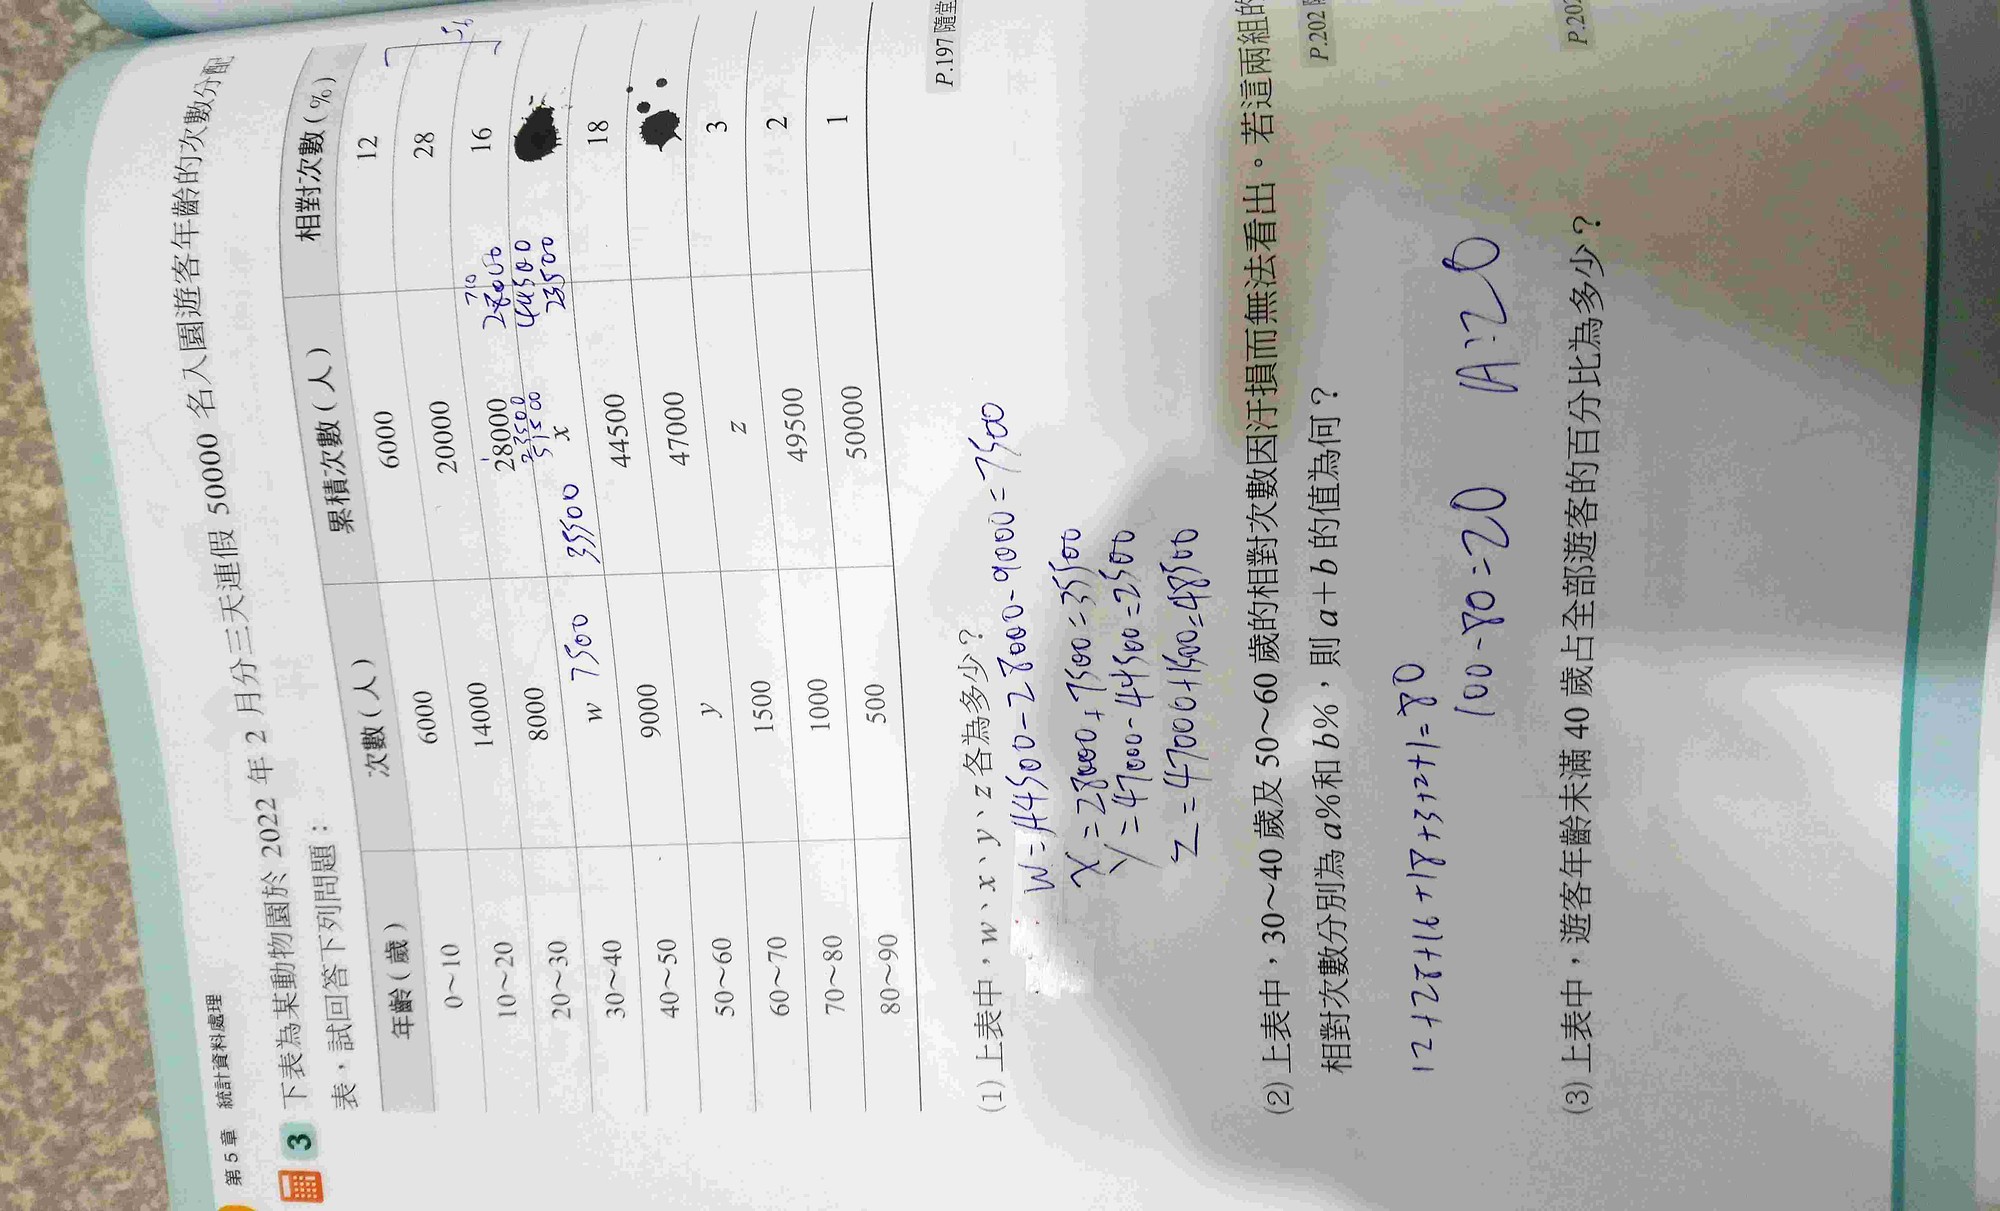 第5章 統計資料處理
3 下表為某動物園於 2022 年 2 月分三天連假 50000 名入園遊客年齡的次數分配
表，試回答下列問題：
年齡(歲) 次數(人) 累積次數(人) 相對次數(%)
0～10 6000 6000 12
10～20 14000 20000 28
56
20～30 8000 28000 16
23500
51500
710
28000
44500
23500
30～40 w 7500 x 35500
40～50 9000 44500 18
50～60 y 47000
60～70 1500 z 3
70～80 1000 49500 2
80～90 500 50000 1
P.197 隨堂
(1) 上表中，w、x、y、z 各為多少？
W=44500-28000-9000=7500
X=28000+7500=35500
Y=47000-44500=2500
Z=47000+1500=48500
(2) 上表中，30～40 歲及 50～60 歲的相對次數因汙損而無法看出。若這兩組的
相對次數分別為 a%和 b%，則 a+b 的值為何？
P.202
12+28+16+18+3+2+1=80
100-80=20 A:20
(3) 上表中，遊客年齡未滿 40 歲占全部遊客的百分比為多少？
P.202